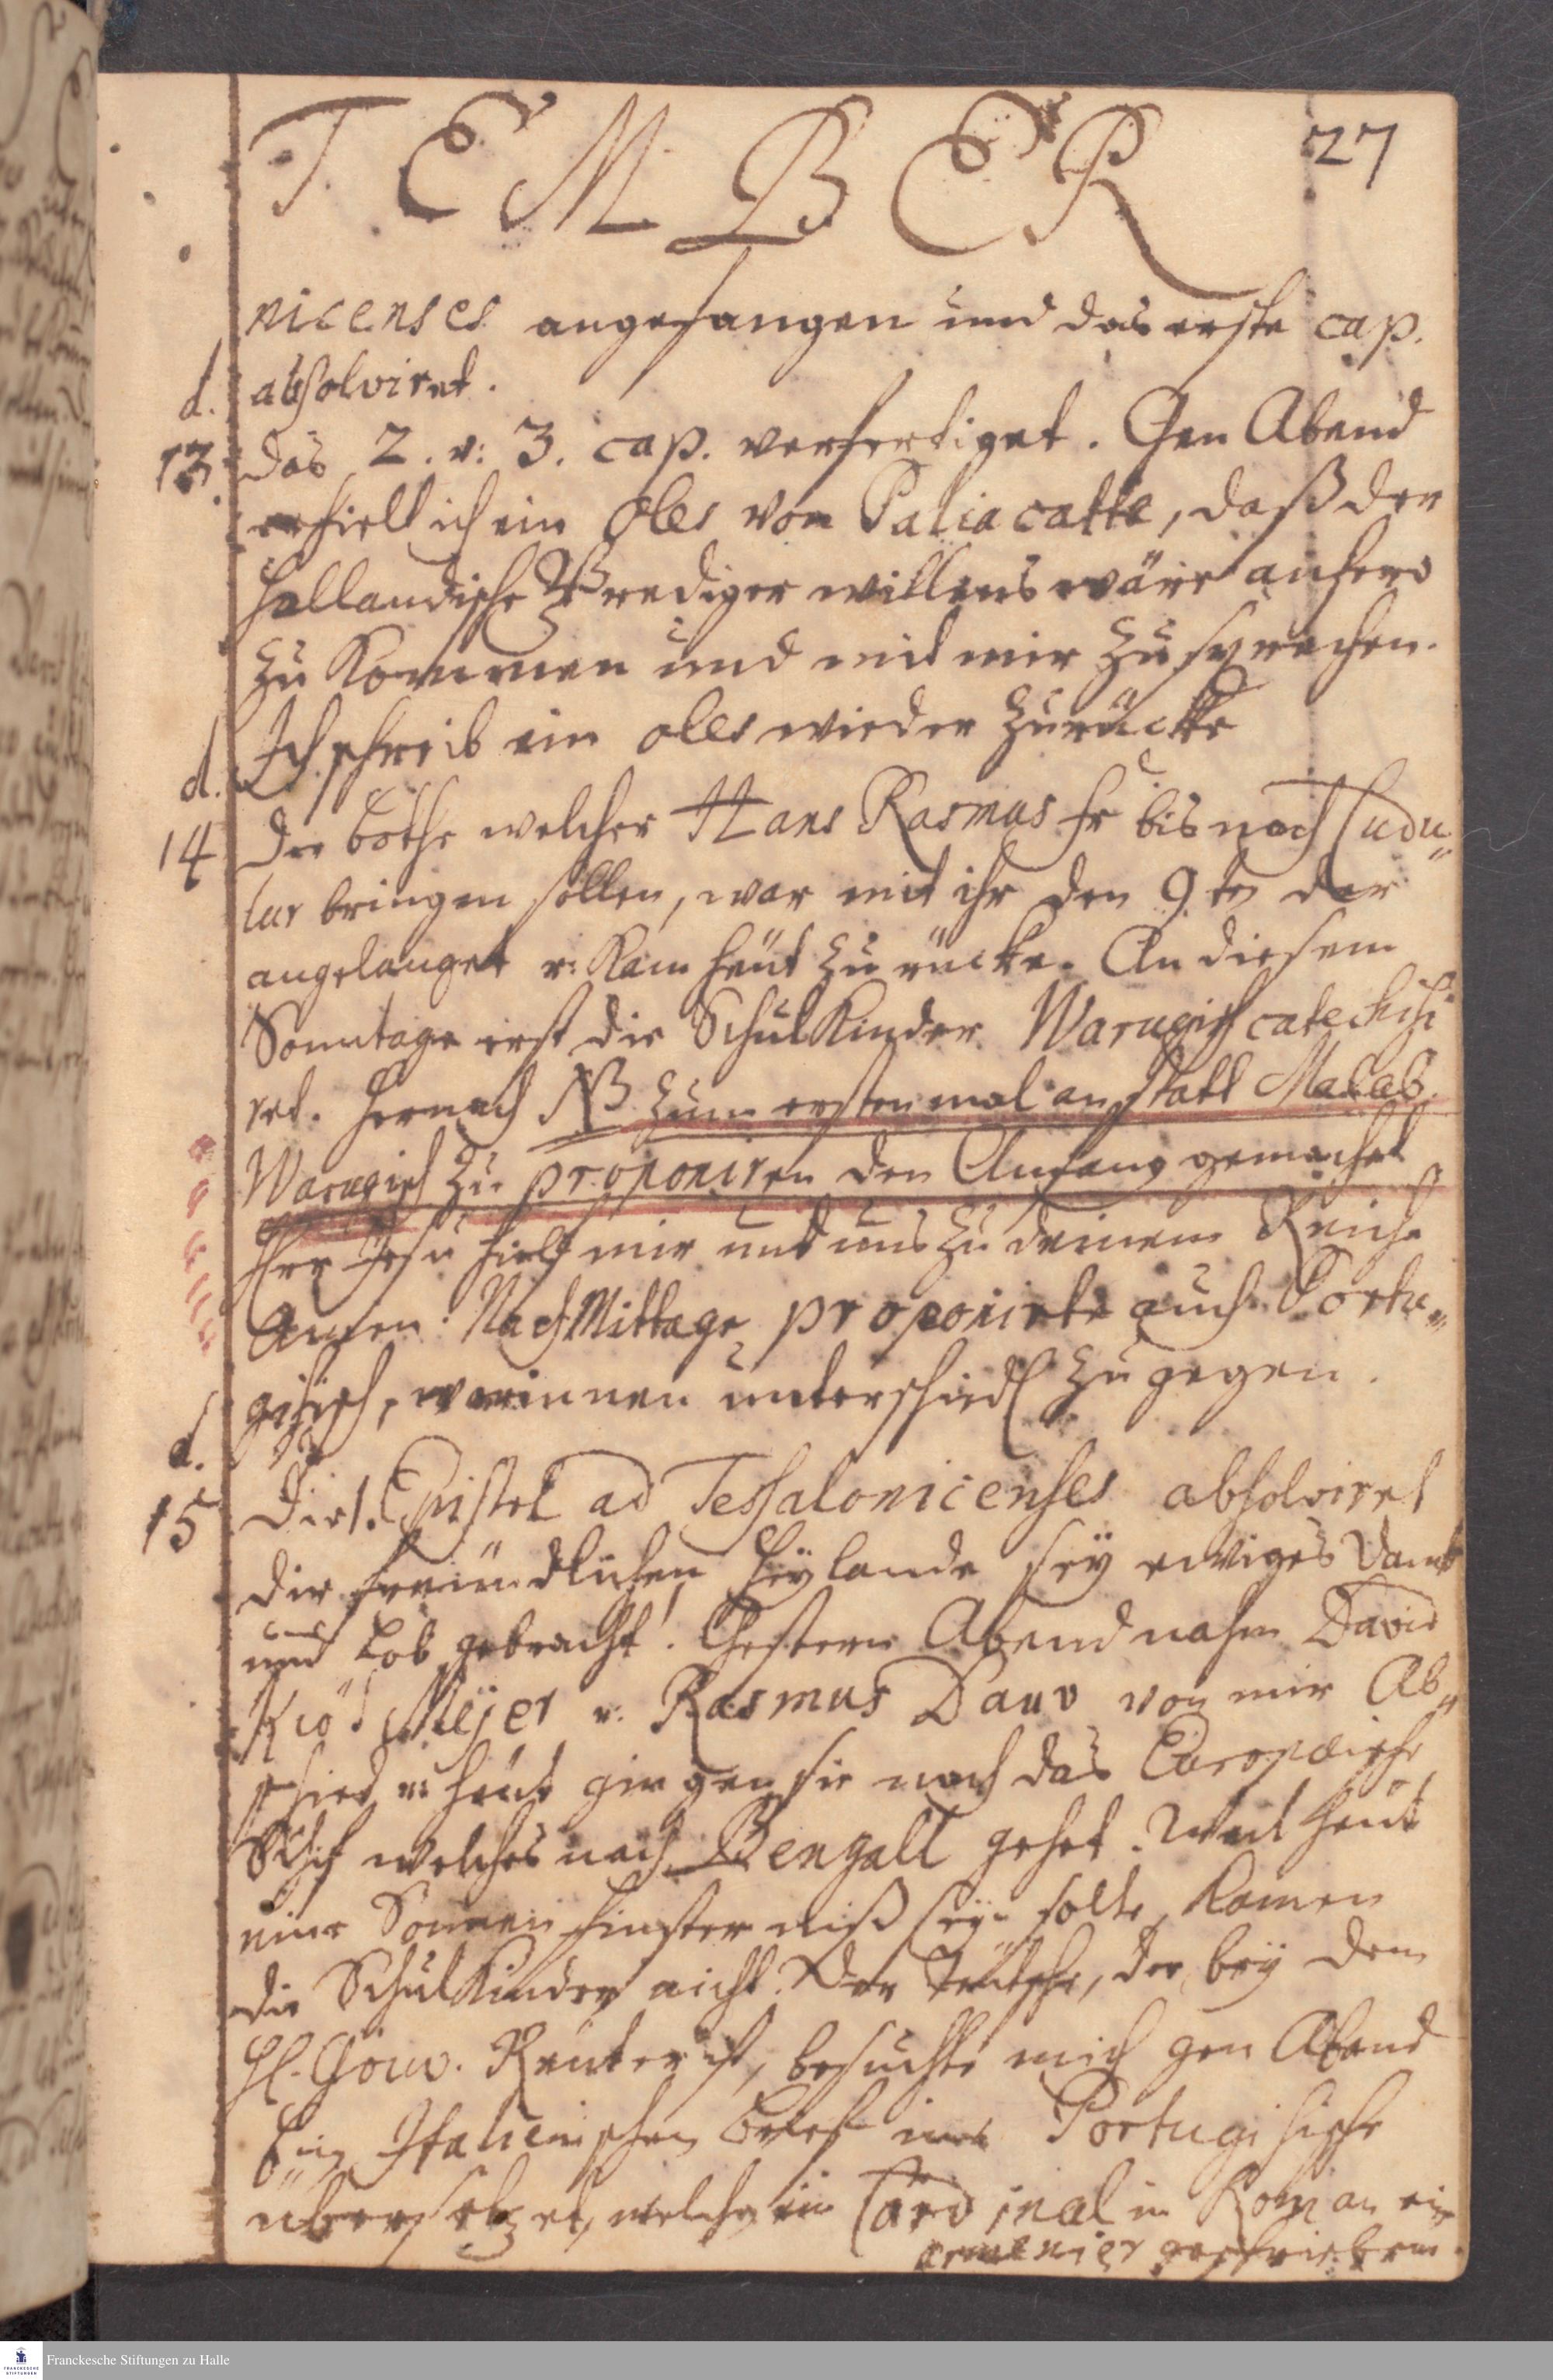 TEMBER 27
nicenses angefangen und das erste cap.
d. absolviret.
13. das 2. v: 3. cap. verfertiget. Gen Abend
erhielt ich ein Oles von Paliacatta, daß der
Hollandische Prediger willens wäre anhero
zu kommen und mit mir zu sprechen.
d. Ich schreib ein oles wieder zurücke
14 Der bothe welcher Hans Rasmus Fr bis nach Cudu„
lur bringen sollen, war mit ihr den 9ten der
angelanget v: kam heut zurücke. An diesem
Sonntage erst die Schulkinder Warugisch catechisi
ret. Hernach NB zum ersten mal anstatt Malab.
Warugisch zu proponiren den Anfang gemachet
Herr Jesu hielf mir und uns zu deinem Reiche
Amen. Nach Mittage proponirte auch Portu„
gisisch, worinnen unterschiedl zugegen.
d.
15 Die 1. Epistel ad Tessalonicenses absolviret
Dir freundlichen Heylande sey ewiges Danck
und Lob gebracht! Gestern Abend nahm David
Meyer v: Rasmus Dauv von mir Ab„
schied v: heut gingen sie nach das Europæische
Schif welches nach Bengall gehet. Weil heut
eine Sonnen finsterniß seyn solte, kamen
die Schulkinder nicht. Der Teutsche, der bey dem
H. Gouv. Reuter ist, besuchte mich gen Abend
Ein Italienischen Brief ins Portugisische
übersetzet, welchen ein Cardinal in Rom an ein
armenier geschrieben.
Franckesche Stiftungen zu Halle
FRANCKESCHE STIFTUNGEN